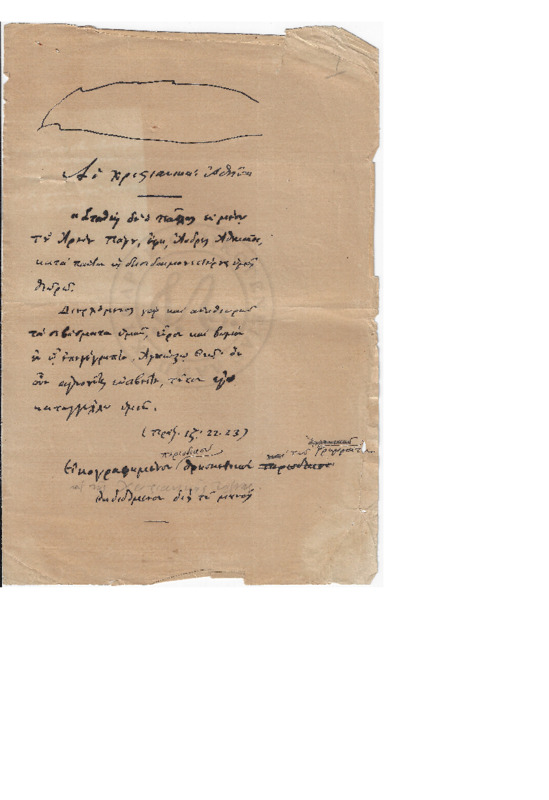 Αἱ Χριστιανικαὶ Ἀθῆναι
« Σταθεὶς δὲ ὁ Παῦλος ἐν μέσῳ
τοῦ Ἀρείου Πάγου, ἔφη, Ἄνδρες Ἀθηναῖοι,
κατὰ πάντα ὡς δεισιδαιμονεστέρους ὑμᾶς
θεωρῶ.
Διερχόμενος γὰρ καὶ ἀναθεωρῶν
τὰ σεβάσματα ὑμῶν, εὗρον καὶ βωμὸν
ἐν ᾧ ἐπεγέγραπτο, Ἀγνώστῳ Θεῷ· ὃν
οὖν ἀγνοοῦντες εὐσεβεῖτε, τοῦτον ἐγὼ
καταγγέλλω ὑμῖν.
(Πράξ. ιζ. 22. 23)
περιοδικὸν
Εἰκογραφημένον θρησκευτικὸν καὶ περιοδικὸν
ἐκδιδόμενον δὶς τοῦ μηνός